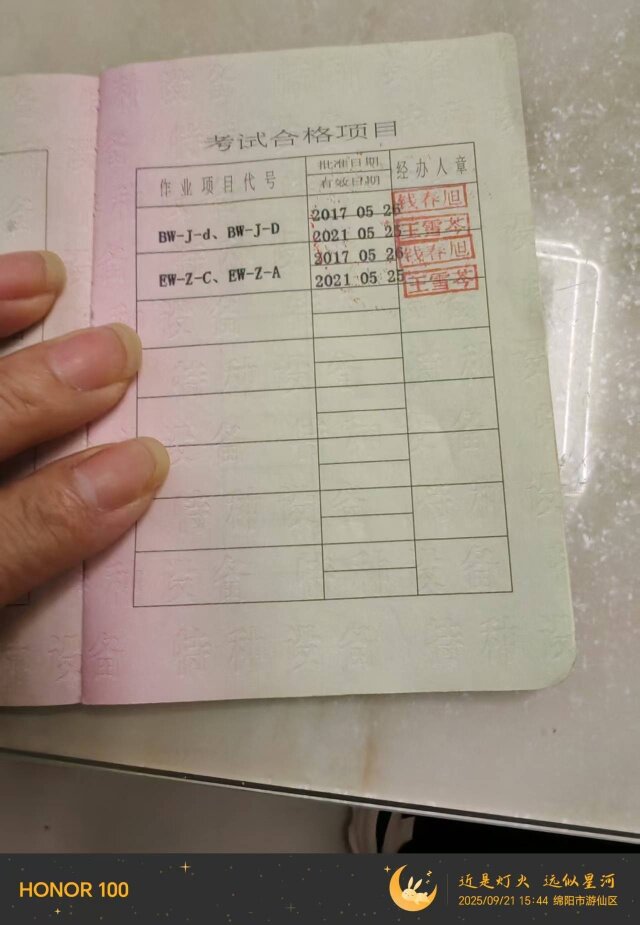 考试合格项目
作业项目代号
批准日期
有效日期
经办人章
BW-J-d、BW-J-D
2017 05 26
2021 05 25
钱春旭
王雪芩
EW-Z-C、EW-Z-A
2017 05 26
2021 05 25
钱春旭
王雪芩
特种设备
HONOR 100
近是灯火 远似星河
2025/09/21 15:44 绵阳市游仙区